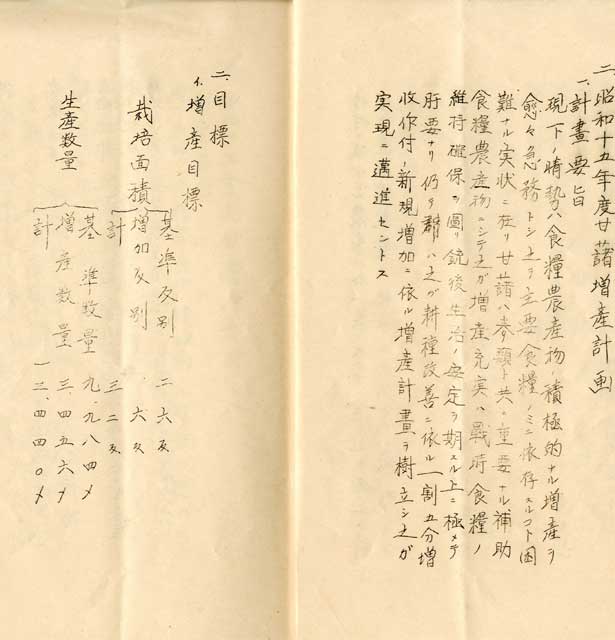 二、昭和十五年度甘藷増産計画
一、計畫要旨
現下ノ情勢ハ食糧農産物ノ積極的ナル増産ヲ
愈々急務トシ之ヲ主要食糧ノミニ依存スルコト困
難ナル実状ニ在リ甘藷ハ麥類ト共ニ重要ナル補助
食糧農産物ニシテ之ガ増産充実ハ戰時食糧ノ
維持確保ヲ圖リ銃後生活ノ安定ヲ期スル上ニ極メテ
肝要ナリ仍ヲ郡ハ之ガ耕種改善ニ依ル一割五分増
收作付ノ新規増加ニ依ル増産計畫ヲ樹立シ之ガ
実現ニ邁進セントス
二、目標
イ、増産目標
栽培面積
基準反別 二六反
増加反別 六反
計 三二反
生産数量
基準数量 九、九八四〆
増産数量 三、四五六〆
計 一三、四四〇〆